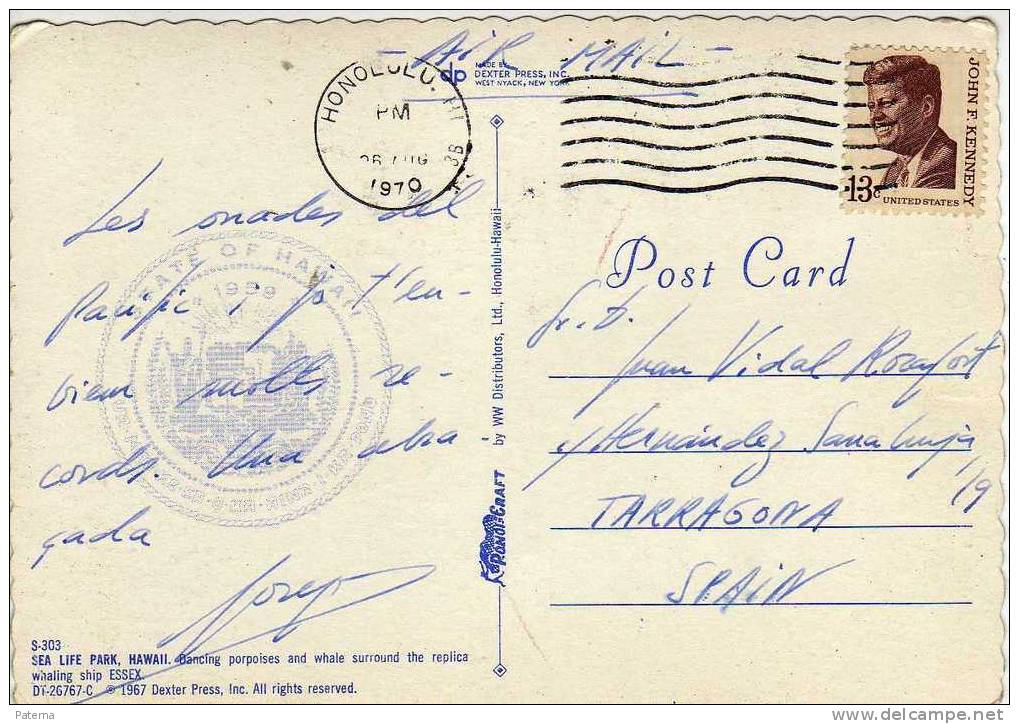 - AIR MAIL -
dp MADE BY
DEXTER PRESS, INC.
WEST NYACK, NEW YORK
HONOLULU, HI
PM
1970
JOHN F. KENNEDY
13c
UNITED STATES
Les onades del
Pacífic, jo t'en-
vien molts re-
cords. Una abra
çada
Josep
STATE OF HAWAII
1959
by WW Distributors, Ltd., Honolulu-Hawaii
PONO'S CRAFT
Post Card
Sr. D.
Juan Vidal Rosefort
c/ Hernández Sanahuja,
19
TARRAGONA
SPAIN
S-303
SEA LIFE PARK, HAWAII. Dancing porpoises and whale surround the replica
whaling ship ESSEX.
DT-26767-C © 1967 Dexter Press, Inc. All rights reserved.
Paterna
www.delcampe.net